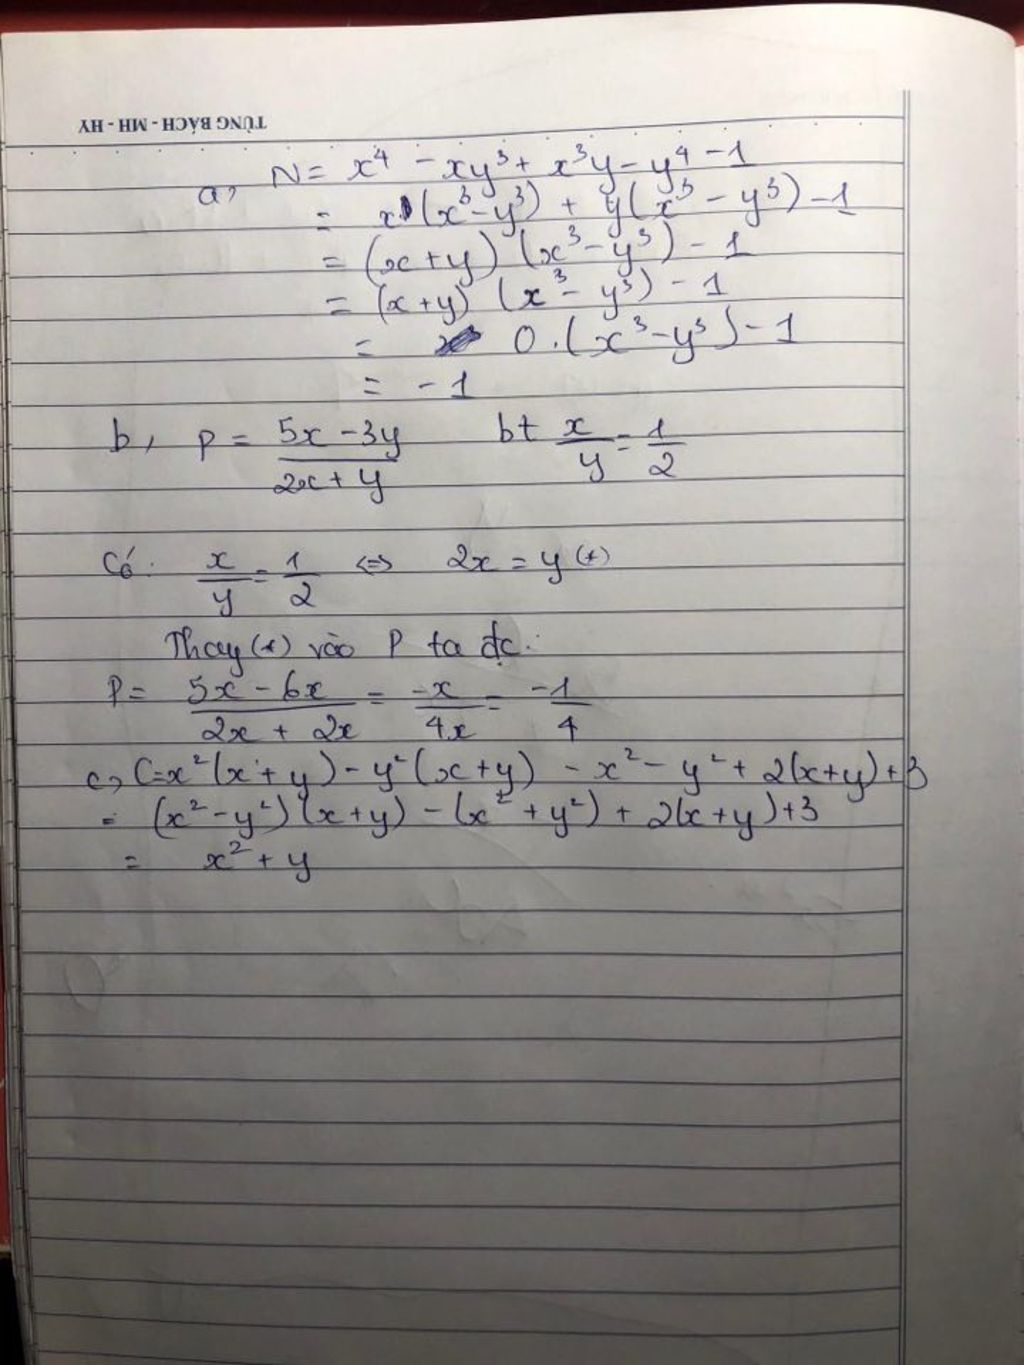 TÙNG BÁCH - MH - HY
a, N = x⁴ - xy³ + x³y - y⁴ - 1
= x(x³ - y³) + y(x³ - y³) - 1
= (x + y) (x³ - y³) - 1
= (x + y) (x³ - y³) - 1
= 0.(x³ - y³) - 1
= -1
b, P = (5x - 3y)/(2x + y) bt x/y = 1/2
Có: x/y = 1/2 ⇔ 2x = y (*)
Thay (*) vào P ta đc:
P = (5x - 6x)/(2x + 2x) = -x/4x = -1/4
c, C = x²(x + y) - y²(x + y) - x² - y² + 2(x + y) + 3
= (x² - y²)(x + y) - (x² + y²) + 2(x + y) + 3
= x² + y